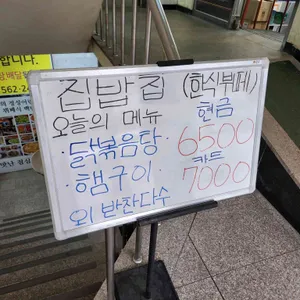 집밥집 (한식뷔페)
오늘의 메뉴 현금
· 닭볶음탕 6500
카드
· 햄구이 7000
외 반찬다수
합니다.
562-24